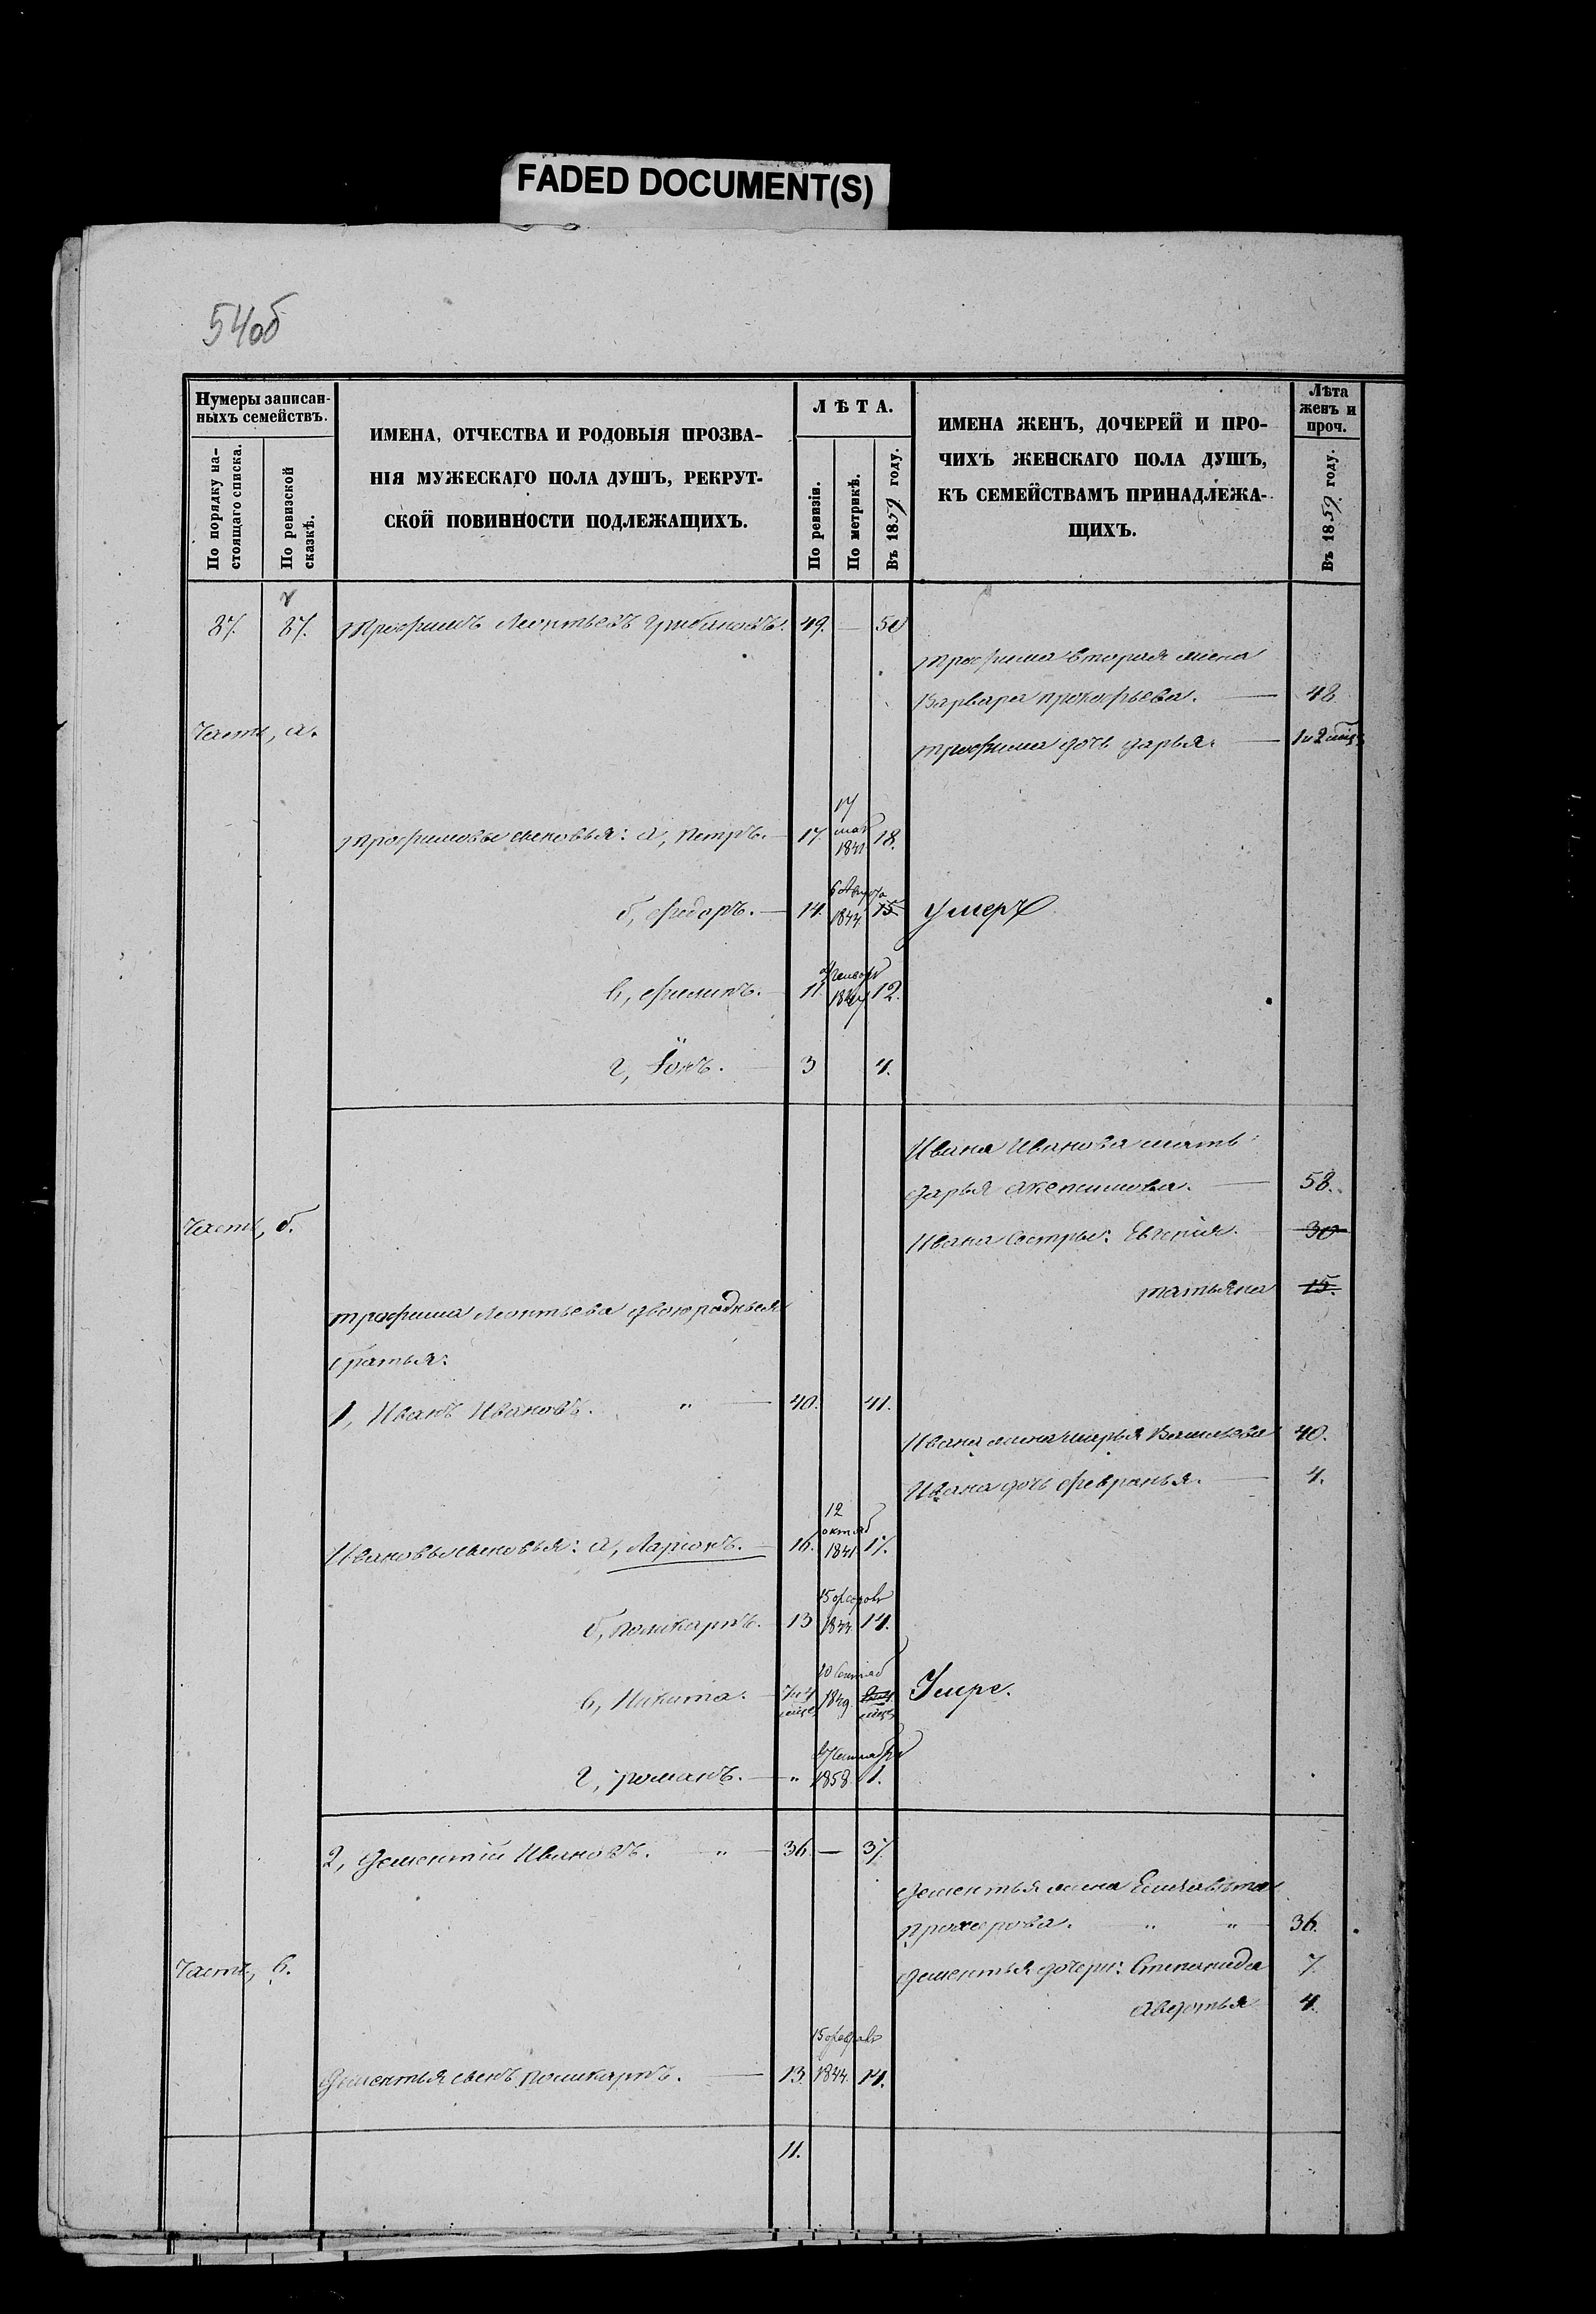 FADED DOCUMENT(S)
54об
Нумеры записан-
ныхъ семействъ.
По порядку на-
стоящаго списка.
По ревизской
сказкѣ.
ИМЕНА, ОТЧЕСТВА И РОДОВЫЯ ПРОЗВА-
НІЯ МУЖЕСКАГО ПОЛА ДУШЪ, РЕКРУТ-
СКОЙ ПОВИННОСТИ ПОДЛЕЖАЩИХЪ.
ЛѢТА.
По ревизіи.
По метрикѣ.
Въ 1859 году.
ИМЕНА ЖЕНЪ, ДОЧЕРЕЙ И ПРО-
ЧИХЪ ЖЕНСКАГО ПОЛА ДУШЪ,
КЪ СЕМЕЙСТВАМЪ ПРИНАДЛЕЖА-
ЩИХЪ.
Лѣта
женъ и
проч.
Въ 1859 году.
87. 87. Трофимъ Леонтьевъ Грибановъ. 49. — 50
Трофима вторая жена
Варвара Прокофьева. — 48
Часть, а.
Трофима дочь Дарья. — 1 и 2 мѣс.
Трофимовы сыновья: а, Петръ. — 17. 17 мая 1841 18.
б, Федоръ. — 14. 6 1844 15 Умеръ
в, Филипъ. — 11. Генворя 1847 12.
г, Іонъ. 3 4.
Ивана Иванова мать
Дарья Акепсимова. — 58.
Часть, б.
Ивана сестры: Евгенія. 30
Татьяна 15.
Трофима Леонтьева двоюродныя
братья:
1, Иванъ Ивановъ. " — 40. 41.
Ивана жена Марья Васильева 40.
Ивана дочь Февронья. — 4.
Ивановы сыновья: а, Ларіонъ. — 16. 12 октяб 1841 17.
б, Поликарпъ. — 13 15 1844 14.
в, Никита. — 7 и 4 мѣсе 10 Сентяб 1849 мѣсе Умре.
г, Романъ. — " Сентября 1858 1.
2, Дементій Ивановъ. " — 36. — 37.
Дементья жена Елизавѣта
Прохорова. " " 36.
Часть, в.
Дементья дочери: Степанида 7.
Авдотья 4.
Дементья сынъ Поликарпъ. — 13. 15 феврал 1844. 14.
11.